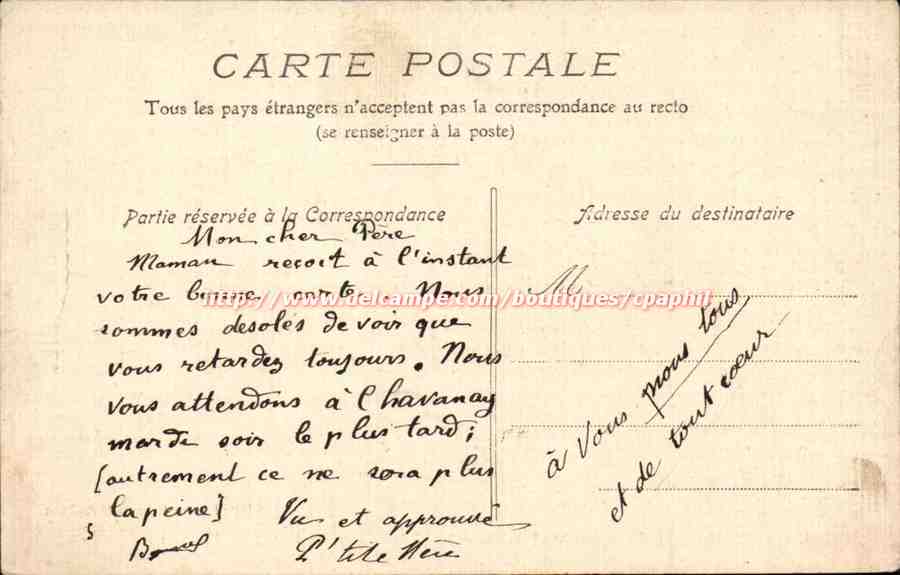 CARTE POSTALE
Tous les pays étrangers n'acceptent pas la correspondance au recto
(se renseigner à la poste)
Partie réservée à la Correspondance
Mon cher Père
Maman reçoit à l'instant
votre bonne carte. Nous
sommes désolés de voir que
vous retardez toujours. Nous
vous attendons à Chavanay
mardi soir le plus tard;
(autrement ce ne sera plus
la peine)
Vu et approuvé
P'tite Mère
Adresse du destinataire
M
à Vous nous tous
et de tout cœur
http://www.delcampe.com/boutiques/cpaphil